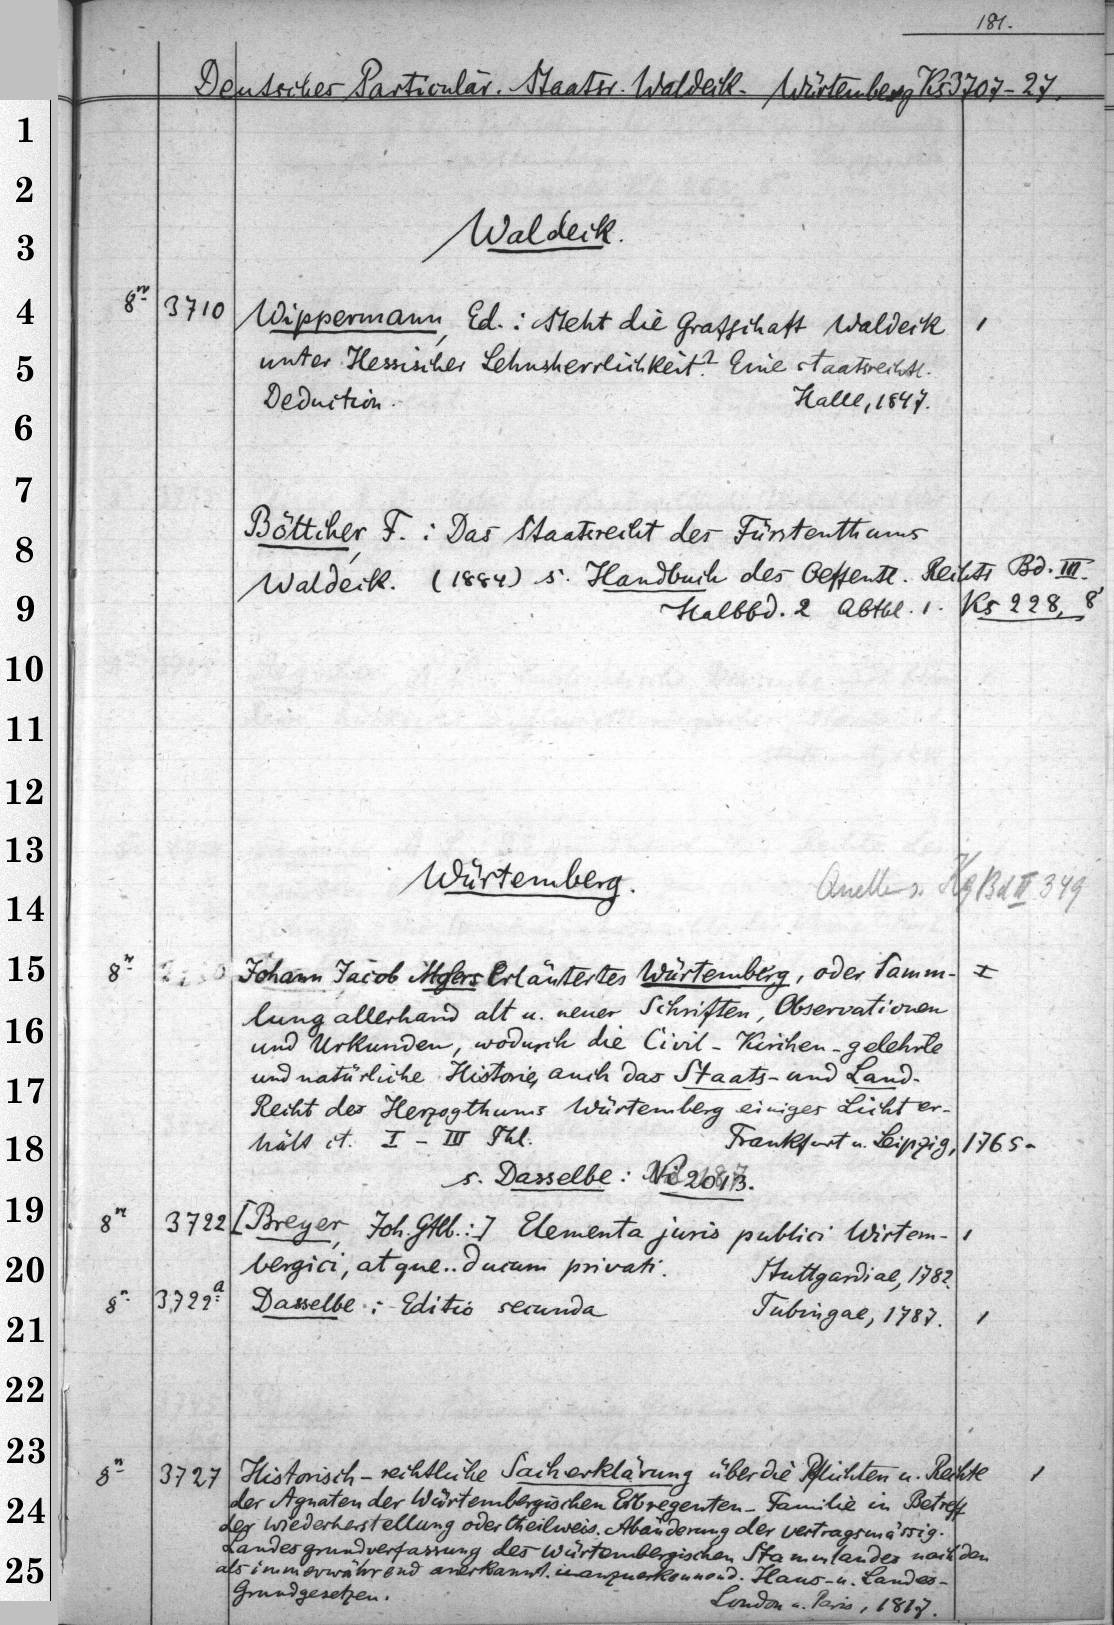 181.
Deutsches Particulär. Staatsr. Waldeck. Würtemberg Ks 3707-27.
1
2
Waldeck.
3
4
8º 3710 Wippermann, Ed.: Steht die Grafschaft Waldeck 1
5
unter Hessischer Lehnsherrlichkeit? Eine staatsrechtl.
Deduction. Halle, 1847.
6
7
Böttcher, F.: Das Staatsrecht des Fürstenthums
8
Waldeck. (1884) s. Handbuch des Oeffentl. Rechts Bd. III.
9
Halbbd. 2 Abthl. 1. Ks 228, 8º
10
11
12
13
Würtemberg. Quellen s. Hg Bd II 349
14
15
8º Johann Jacob Mosers Erläutertes Würtemberg, oder Samm- I
lung allerhand alt u. neuer Schriften, Observationen
16
und Urkunden, wodurch die Civil-Kirchen-gelehrte
17
und natürliche Historie, auch das Staats- und Land-
Recht des Herzogthums Würtemberg einiges Licht er-
18
hält et. I-III Thl. Frankfurt u. Leipzig, 1765.
s. Dasselbe:
19
8º 3722 [Breyer, Joh. Gttl.:] Elementa juris publici Wirtem- 1
20
bergici, atque..ducum privati. Stuttgardiae, 1782.
8º 3722ª Dasselbe: Editio secunda Tubingae, 1787. 1
21
22
23
8º 3727 Historisch-rechtliche Sacherklärung über die Pflichten u. Rechte 1
24
der Agnaten der Würtembergischen Erbregenten-Familie in Betreff
der Wiederherstellung oder theilweis. Abänderung der vertragsmässig.
Landesgrundverfassung des Würtembergischen Stammlandes nach den
25
als immerwährend anerkannt. u. anzuerkennend. Haus- u. Landes-
Grundgesetzen. London u. Paris, 1817.